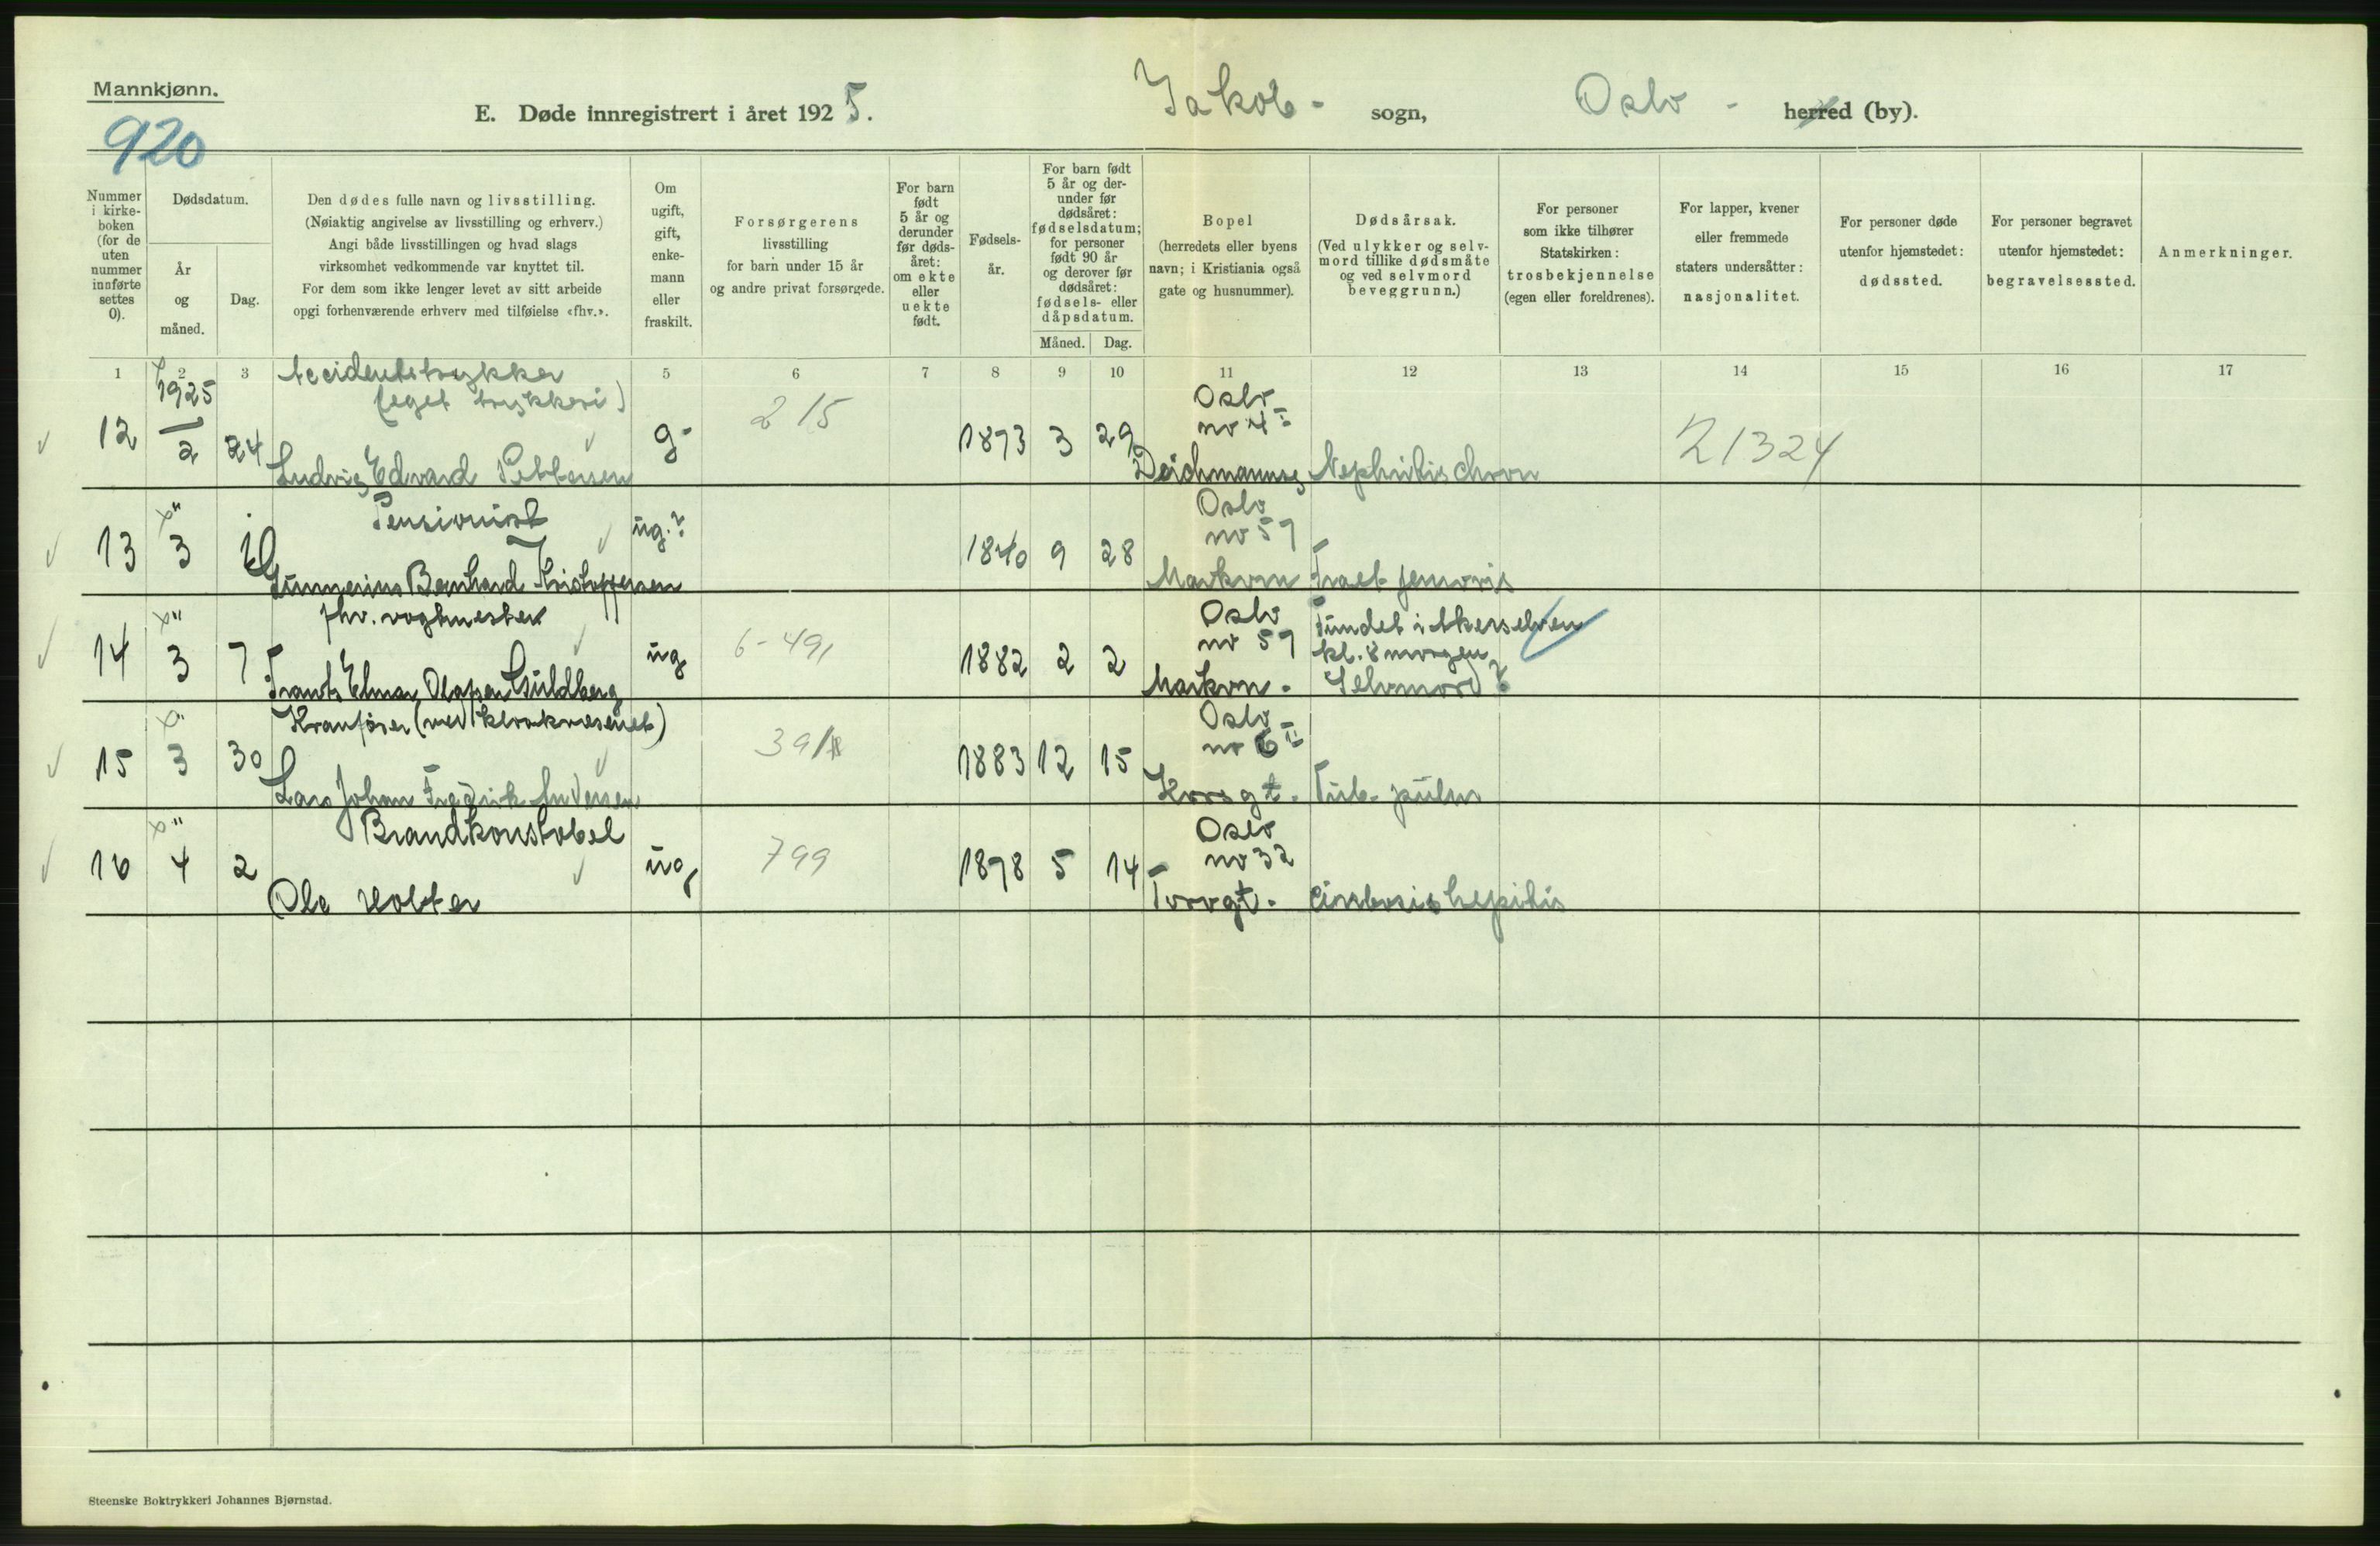 Mannkjønn.
920
E. Døde innregistrert i året 1925.
Jakob - sogn,
Oslo - herred (by).
Nummer i kirke- boken (for de uten nummer innførte settes 0).
Dødsdatum.
År og måned.
Dag.
Den dødes fulle navn og livsstilling.
(Nøiaktig angivelse av livsstilling og erhverv.)
Angi både livsstillingen og hvad slags
virksomhet vedkommende var knyttet til.
For dem som ikke lenger levet av sitt arbeide
opgi forhenværende erhverv med tilføielse «fhv.».
Om ugift, gift, enke- mann eller fraskilt.
Forsørgerens
livsstilling
for barn under 15 år
og andre privat forsørgede.
For barn født 5 år og derunder før døds- året: om ekte eller uekte født.
Fødsels- år.
For barn født 5 år og der- under før dødsåret: fødselsdatum; for personer født 90 år og derover før dødsåret: fødsels- eller dåpsdatum.
Måned. Dag.
Bopel
(herredets eller byens
navn; i Kristiania også
gate og husnummer).
Dødsårsak.
(Ved ulykker og selv-
mord tillike dødsmåte
og ved selvmord
beveggrunn.)
For personer
som ikke tilhører
Statskirken:
trosbekjennelse
(egen eller foreldrenes).
For lapper, kvener
eller fremmede
staters undersåtter:
nasjonalitet.
For personer døde
utenfor hjemstedet:
dødssted.
For personer begravet
utenfor hjemstedet:
begravelsessted.
Anmerkninger.
1 2 3 5 6 7 8 9 10 11 12 13 14 15 16 17
Accidentstrykker
(eget trykkeri)
12 1925 2 24 Ludvig Edvard Pettersen g. 215 1873 3 29
Oslo
no 4 I
Deichmansg Nephritis chron
21324
Pensionist
13 " 3 Gunnerius Bernhard Kristoffersen ug.? 1840 9 28
Oslo
no 59
Markvn Fract. femoris
fhv. vogtmester
14 " 3 7 Frants Elmar Olafsen Guldberg ug 6-491 1882 2 2
Oslo
no 59
Markvn.
Fundet i Akerselven
kl. 8 morgen
Selvmord?
Kranfører (ved kloakvesenet)
15 " 3 30 Lars Johan Fredrik Andersen 391 1883 12 15
Oslo
no 6 II
Korsgt. Tub. pulm
Brandkonstabel
16 " 4 2 Ole Holter ug 799 1878 5 14
Oslo
no 32
Torvgt. Cirrhosis hepitis
Steenske Boktrykkeri Johannes Bjørnstad.